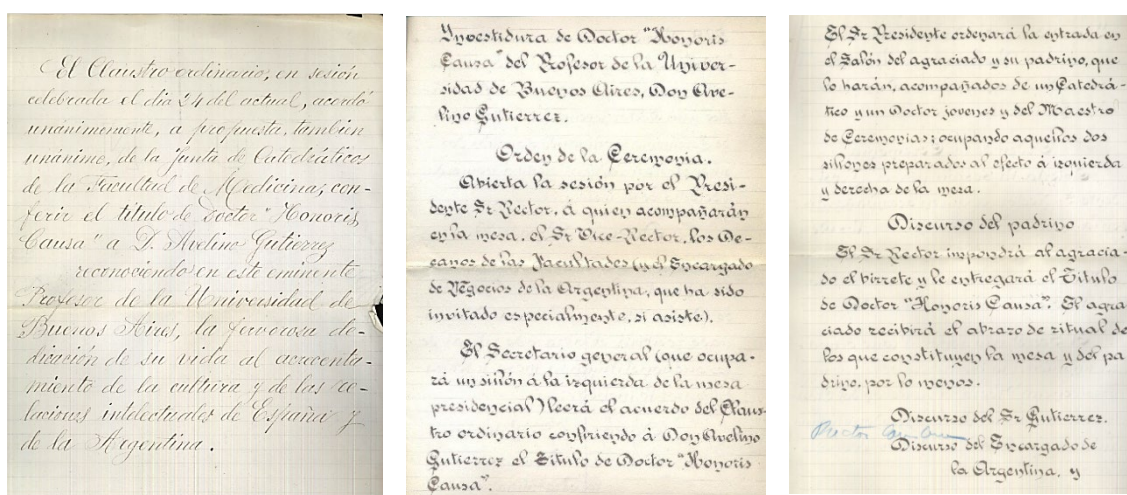 El Claustro ordinario, en sesión
celebrada el día 24 del actual, acordó
unánimemente, a propuesta, también
unánime, de la Junta de Catedráticos
de la Facultad de Medicina; con-
ferir el título de Doctor "Honoris
Causa" a D. Avelino Gutierrez
reconociendo en este eminente
Profesor de la Universidad de
Buenos Aires, la fervorosa de-
dicación de su vida al acrecenta-
miento de la cultura y de las re-
laciones intelectuales de España y
de la Argentina.
Investidura de Doctor "Honoris
Causa" del Profesor de la Univer-
sidad de Buenos Aires, Don Ave-
lino Gutierrez.
Orden de la Ceremonia.
Abierta la sesión por el Presi-
dente Sr Rector, á quien acompañarán
en la mesa, el Sr Vice-Rector, los De-
canos de las Facultades (y el Encargado
de Negocios de la Argentina, que ha sido
invitado especialmente, si asiste).
El Secretario general (que ocupa-
rá un sillón á la izquierda de la mesa
presidencial) leerá el acuerdo del Claus-
tro ordinario confiriendo á Don Avelino
Gutierrez el Título de Doctor "Honoris
Causa".
El Sr Presidente ordenará la entrada en
el Salón del agraciado y su padrino, que
lo harán, acompañados de un Catedrá-
tico y un Doctor jovenes y del Maestro
de Ceremonias; ocupando aquellos dos
sillones preparados al efecto á izquierda
y derecha de la mesa.
Discurso del padrino
El Sr Rector impondrá al agracia-
do el birrete y le entregará el Título
de Doctor "Honoris Causa". El agra
ciado recibirá el abrazo de ritual de
los que constituyen la mesa y del pa
drino, por lo menos.
Discurso del Sr Gutierrez.
Discurso del Encargado de
la Argentina, y